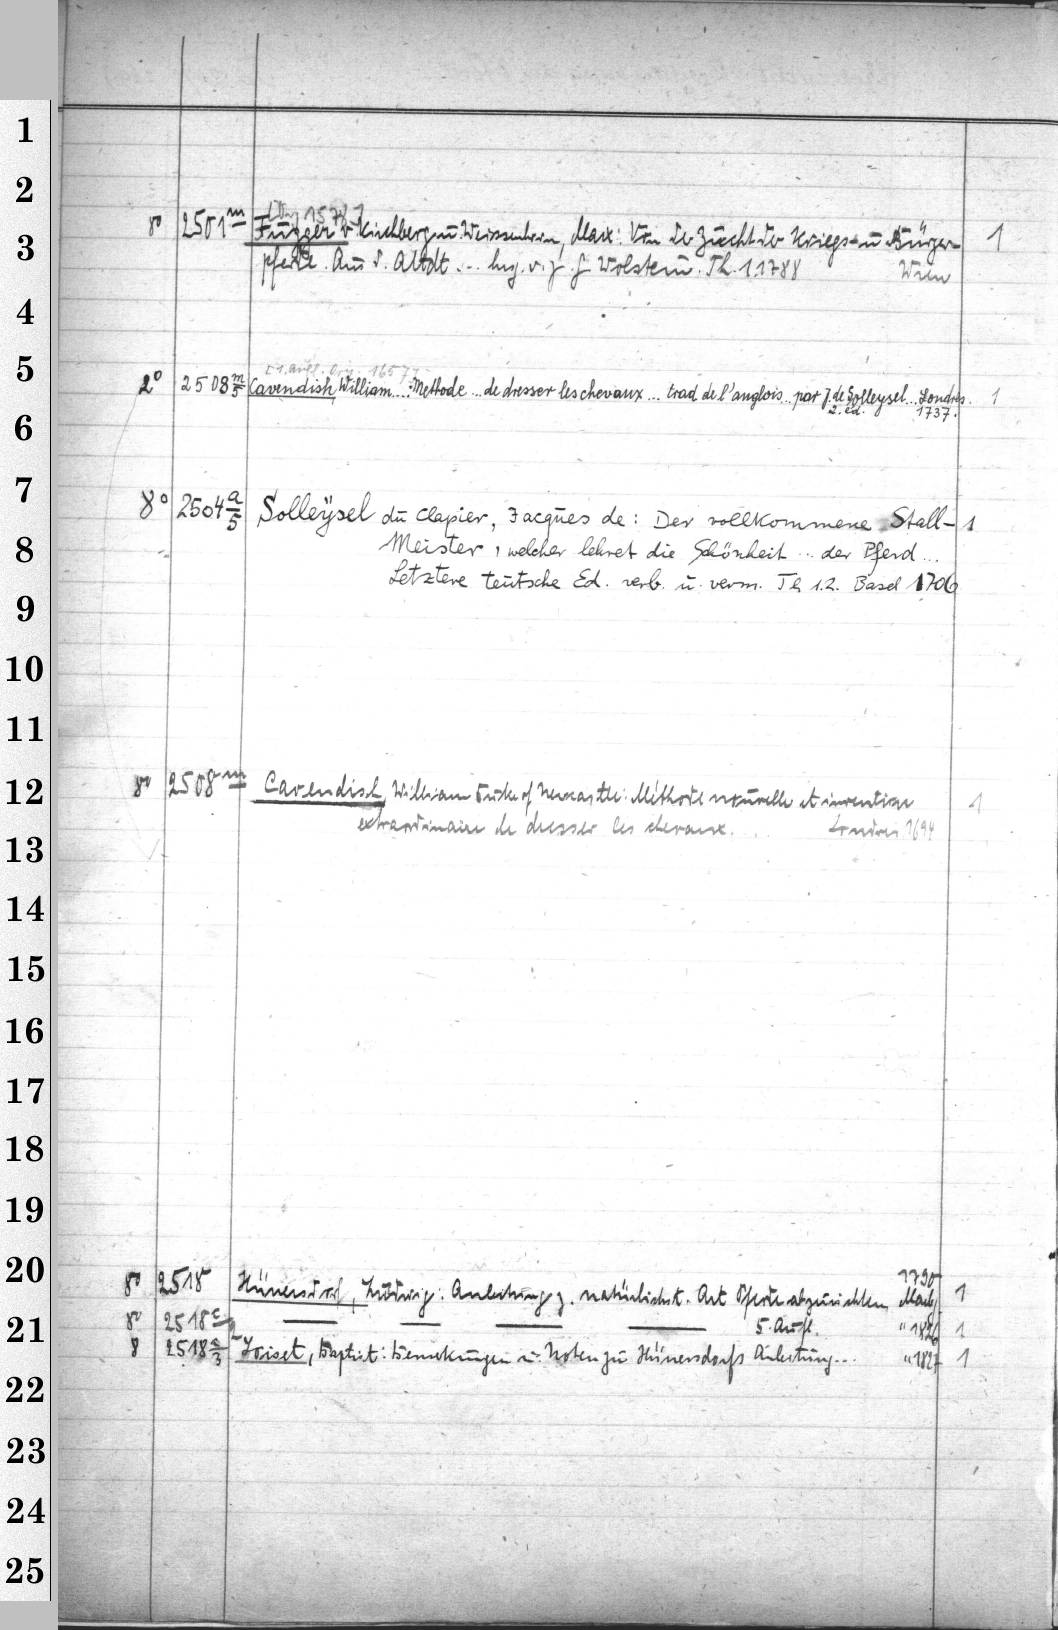 1
2
[Orig 1578]
8° 2501 m Fugger v. Kirchberg u. Weissenhorn, Max: Von der Zucht der Kriegs- u. Bürger- 1
3
pferde. Aus d. Altdt. ... hrsg. v. J. G. Wolstein. Th. 1. 1788 Wien
4
5
[1. Aufl. Orig. 1657]
2° 2508 m/5 Cavendish, William ...: Methode ... de dresser les chevaux ... trad de l'anglois .. par J. de Solleysel ... Londres. 1
2. éd. 1737.
6
7
8° 2504 a/5 Solleÿsel du Clapier, Jacques de: Der vollkommene Stall- 1
8
Meister, welcher lehret die Schönheit ... der Pferd ...
Letztere teutsche Ed. verb. u. verm. Th 1.2. Basel 1706
9
10
11
12
8° 2508 m Cavendish, William Duke of Newcastle: Méthode nouvelle et invention 1
extraordinaire de dresser les chevaux. Londres 1694
13
14
15
16
17
18
19
20
1790
8° 2518 Hünersdorf, Ludwig: Anleitung z. natürlichst. Art Pferde abzurichten Marbg 1
21
8° 2518 — — — — 5. Aufl. " 1826 1
8 2518 a/3 Loiset, Baptist: Bemerkungen u. Noten zu Hünersdorfs Anleitung... " 1827 1
22
23
24
25